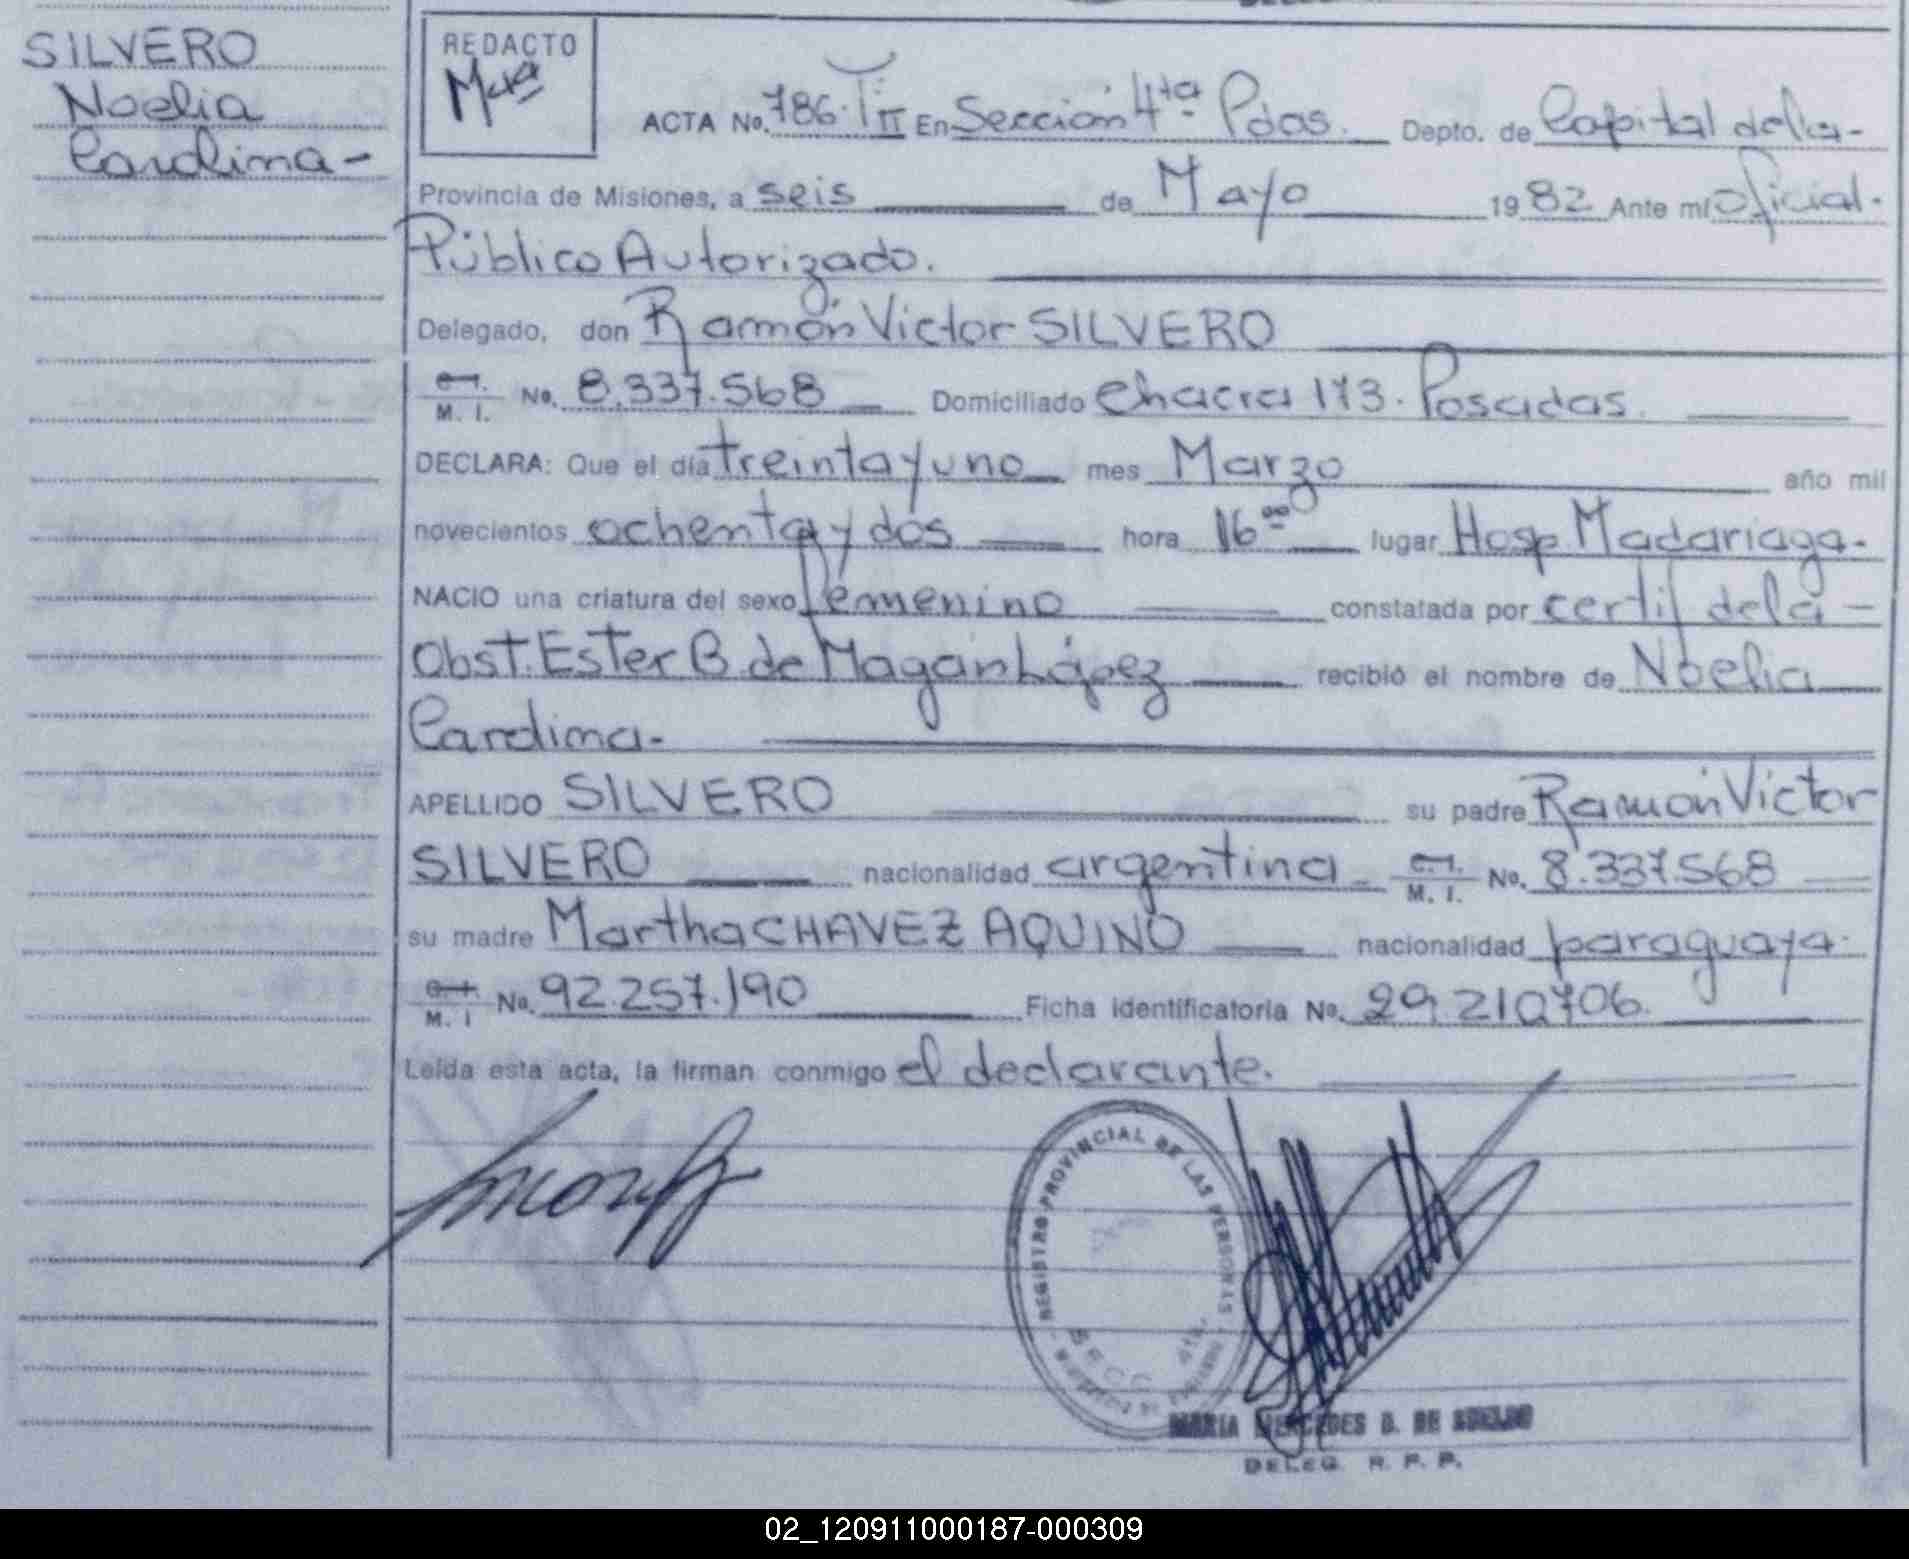 SILVERO
Noelia
Carolina-
REDACTO
ACTA No. 786. T II En Sección 4ta Pdas. Depto. de Capital de la-
Provincia de Misiones, a seis de Mayo 1982 Ante mí Oficial.
Público Autorizado.
Delegado, don Ramón Victor SILVERO
M. I. No. 8.337.568 Domiciliado Chacra 173. Posadas.
DECLARA: Que el día treinta y uno mes Marzo año mil
novecientos ochenta y dos hora 16 00 lugar Hosp Madariaga.
NACIO una criatura del sexo femenino constatada por certif de la-
Obst. Ester B. de Magán López recibió el nombre de Noelia
Carolina.
APELLIDO SILVERO su padre Ramón Victor
SILVERO nacionalidad argentina - M. I. No. 8.337.568
su madre Martha CHAVEZ AQUINO nacionalidad paraguaya.
M. I No. 92.257.190 Ficha identificatoria No. 29.210.706.
Leída esta acta, la firman conmigo el declarante.
REGISTRO PROVINCIAL DE LAS PERSONAS
SECC. 4ta.
MARIA MERCEDES B. DE
DELEG. R. P. P.
02_120911000187-000309